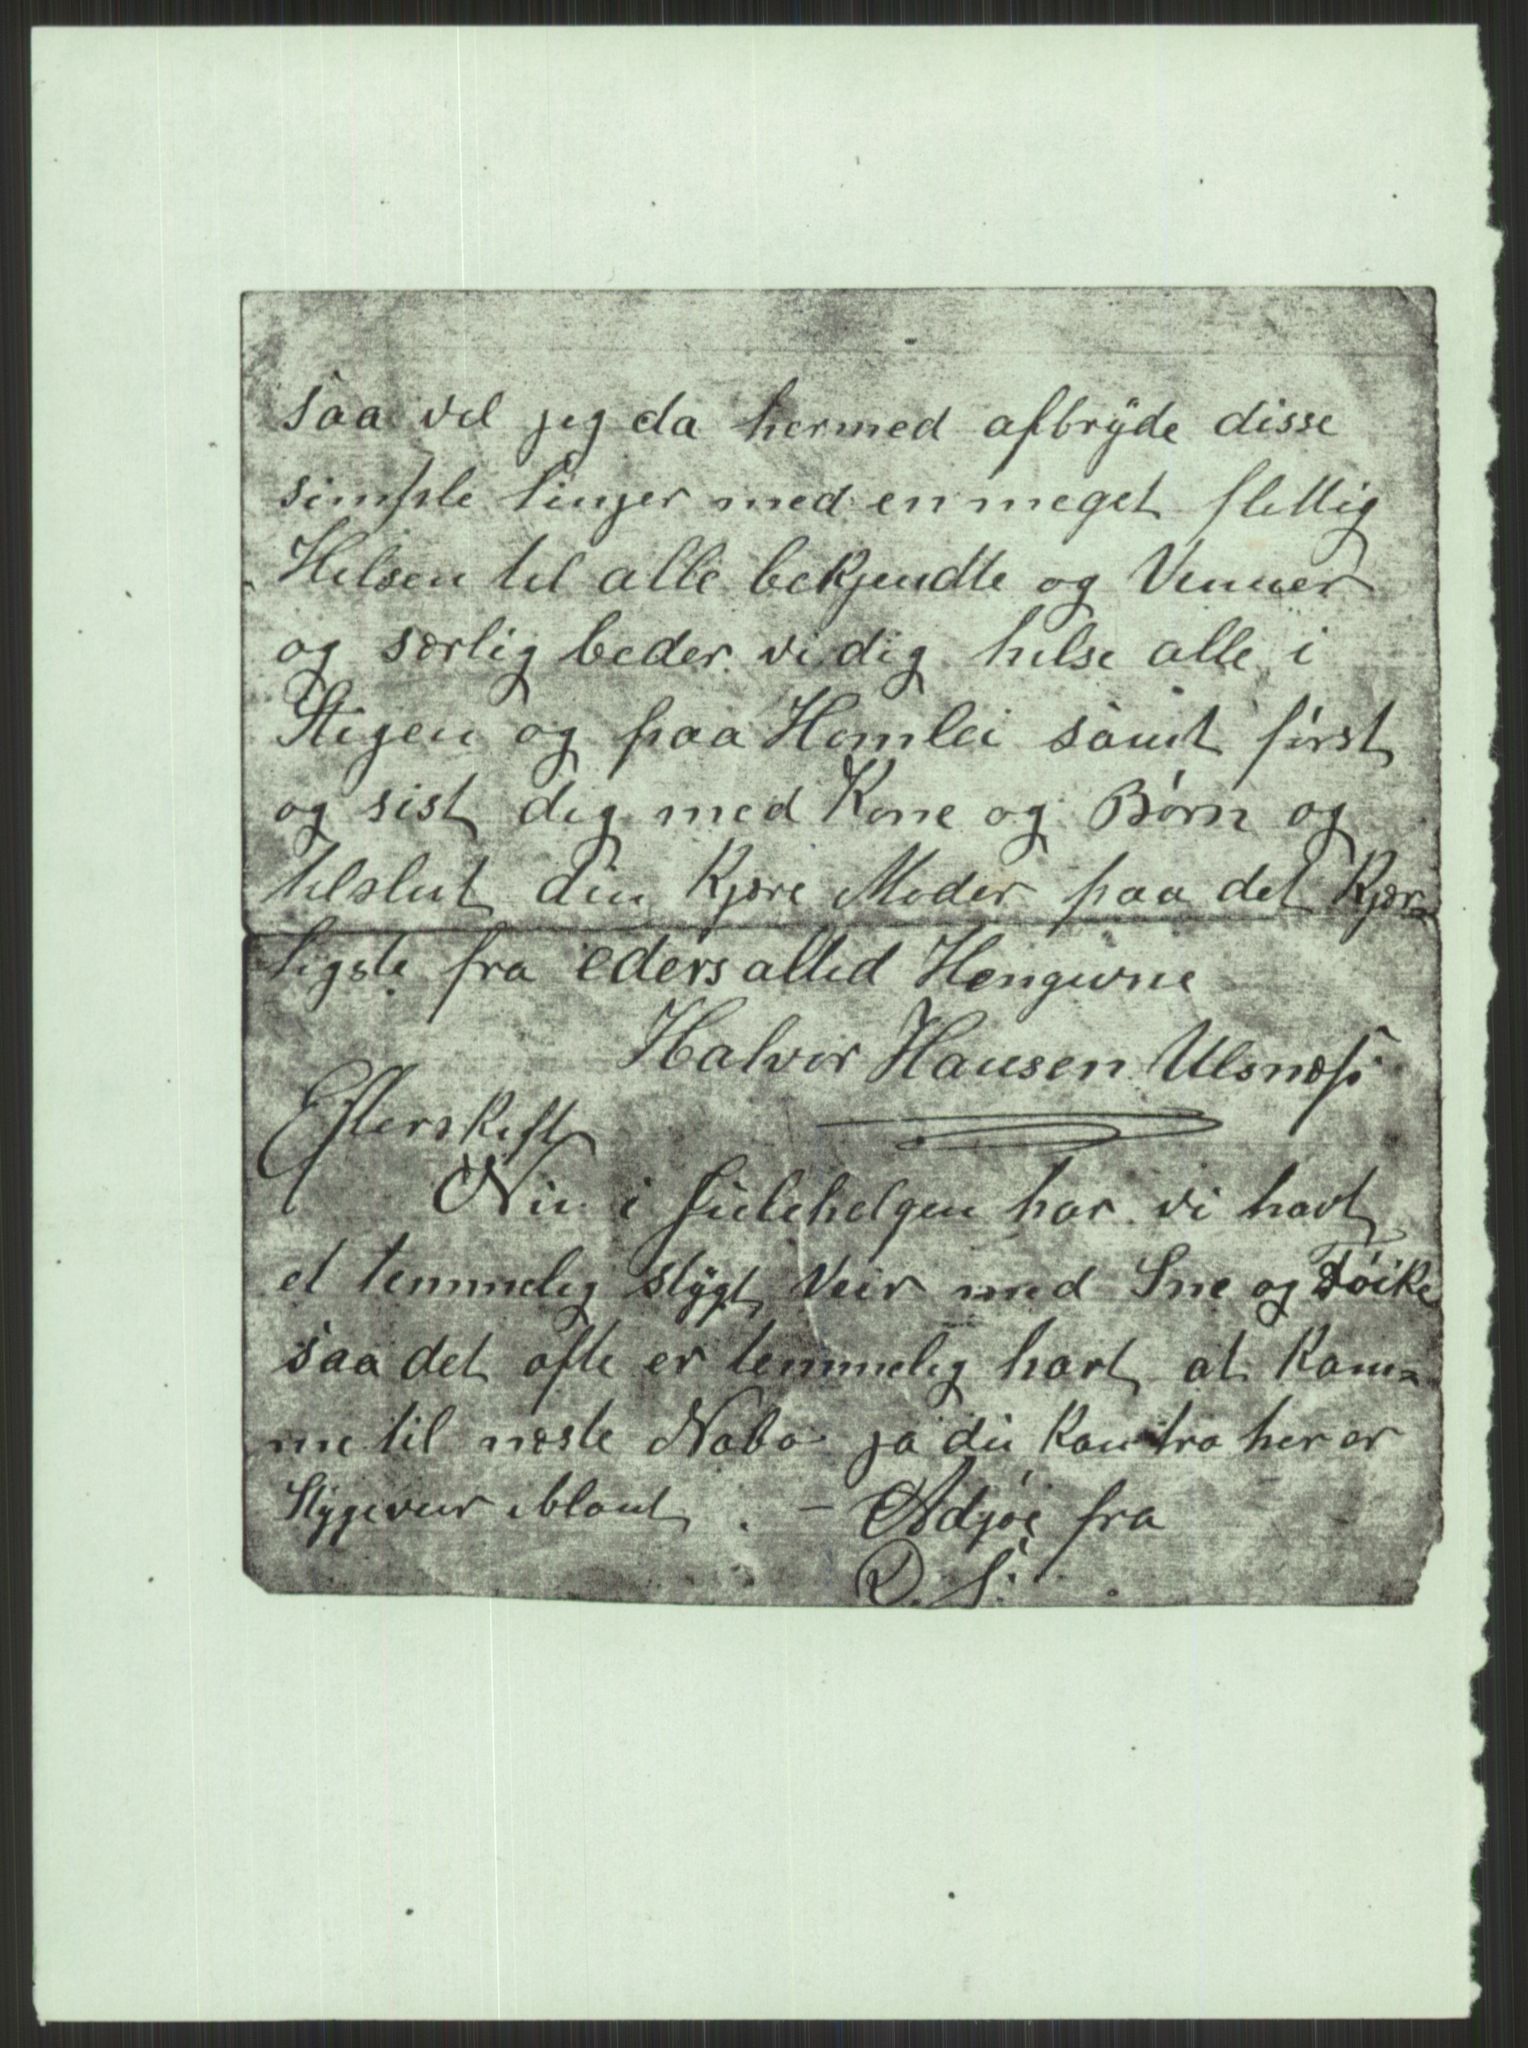 saa vil jeg da hermed afbryde disse
simple Linjer med en meget flittig
Hilsen til alle bekjendte og Venner
og særlig beder vi dig hilse alle i
Stigen og paa Homlei samt først
og sist dig med Kone og Børn og
tilslut din Kjære Moder paa det Kjær-
ligste fra eders altid Hengivne
Halvor Hansen Ulsnæs
Efterskrift
Nu i Julehelgen har vi havt
et temmelig stygt Veir med Sne og Føike
saa det ofte er temmelig hart at Kom-
me til næste Nabo ja du kan tro her er
Stygeveir iblant. - Adjøe fra
D. S.